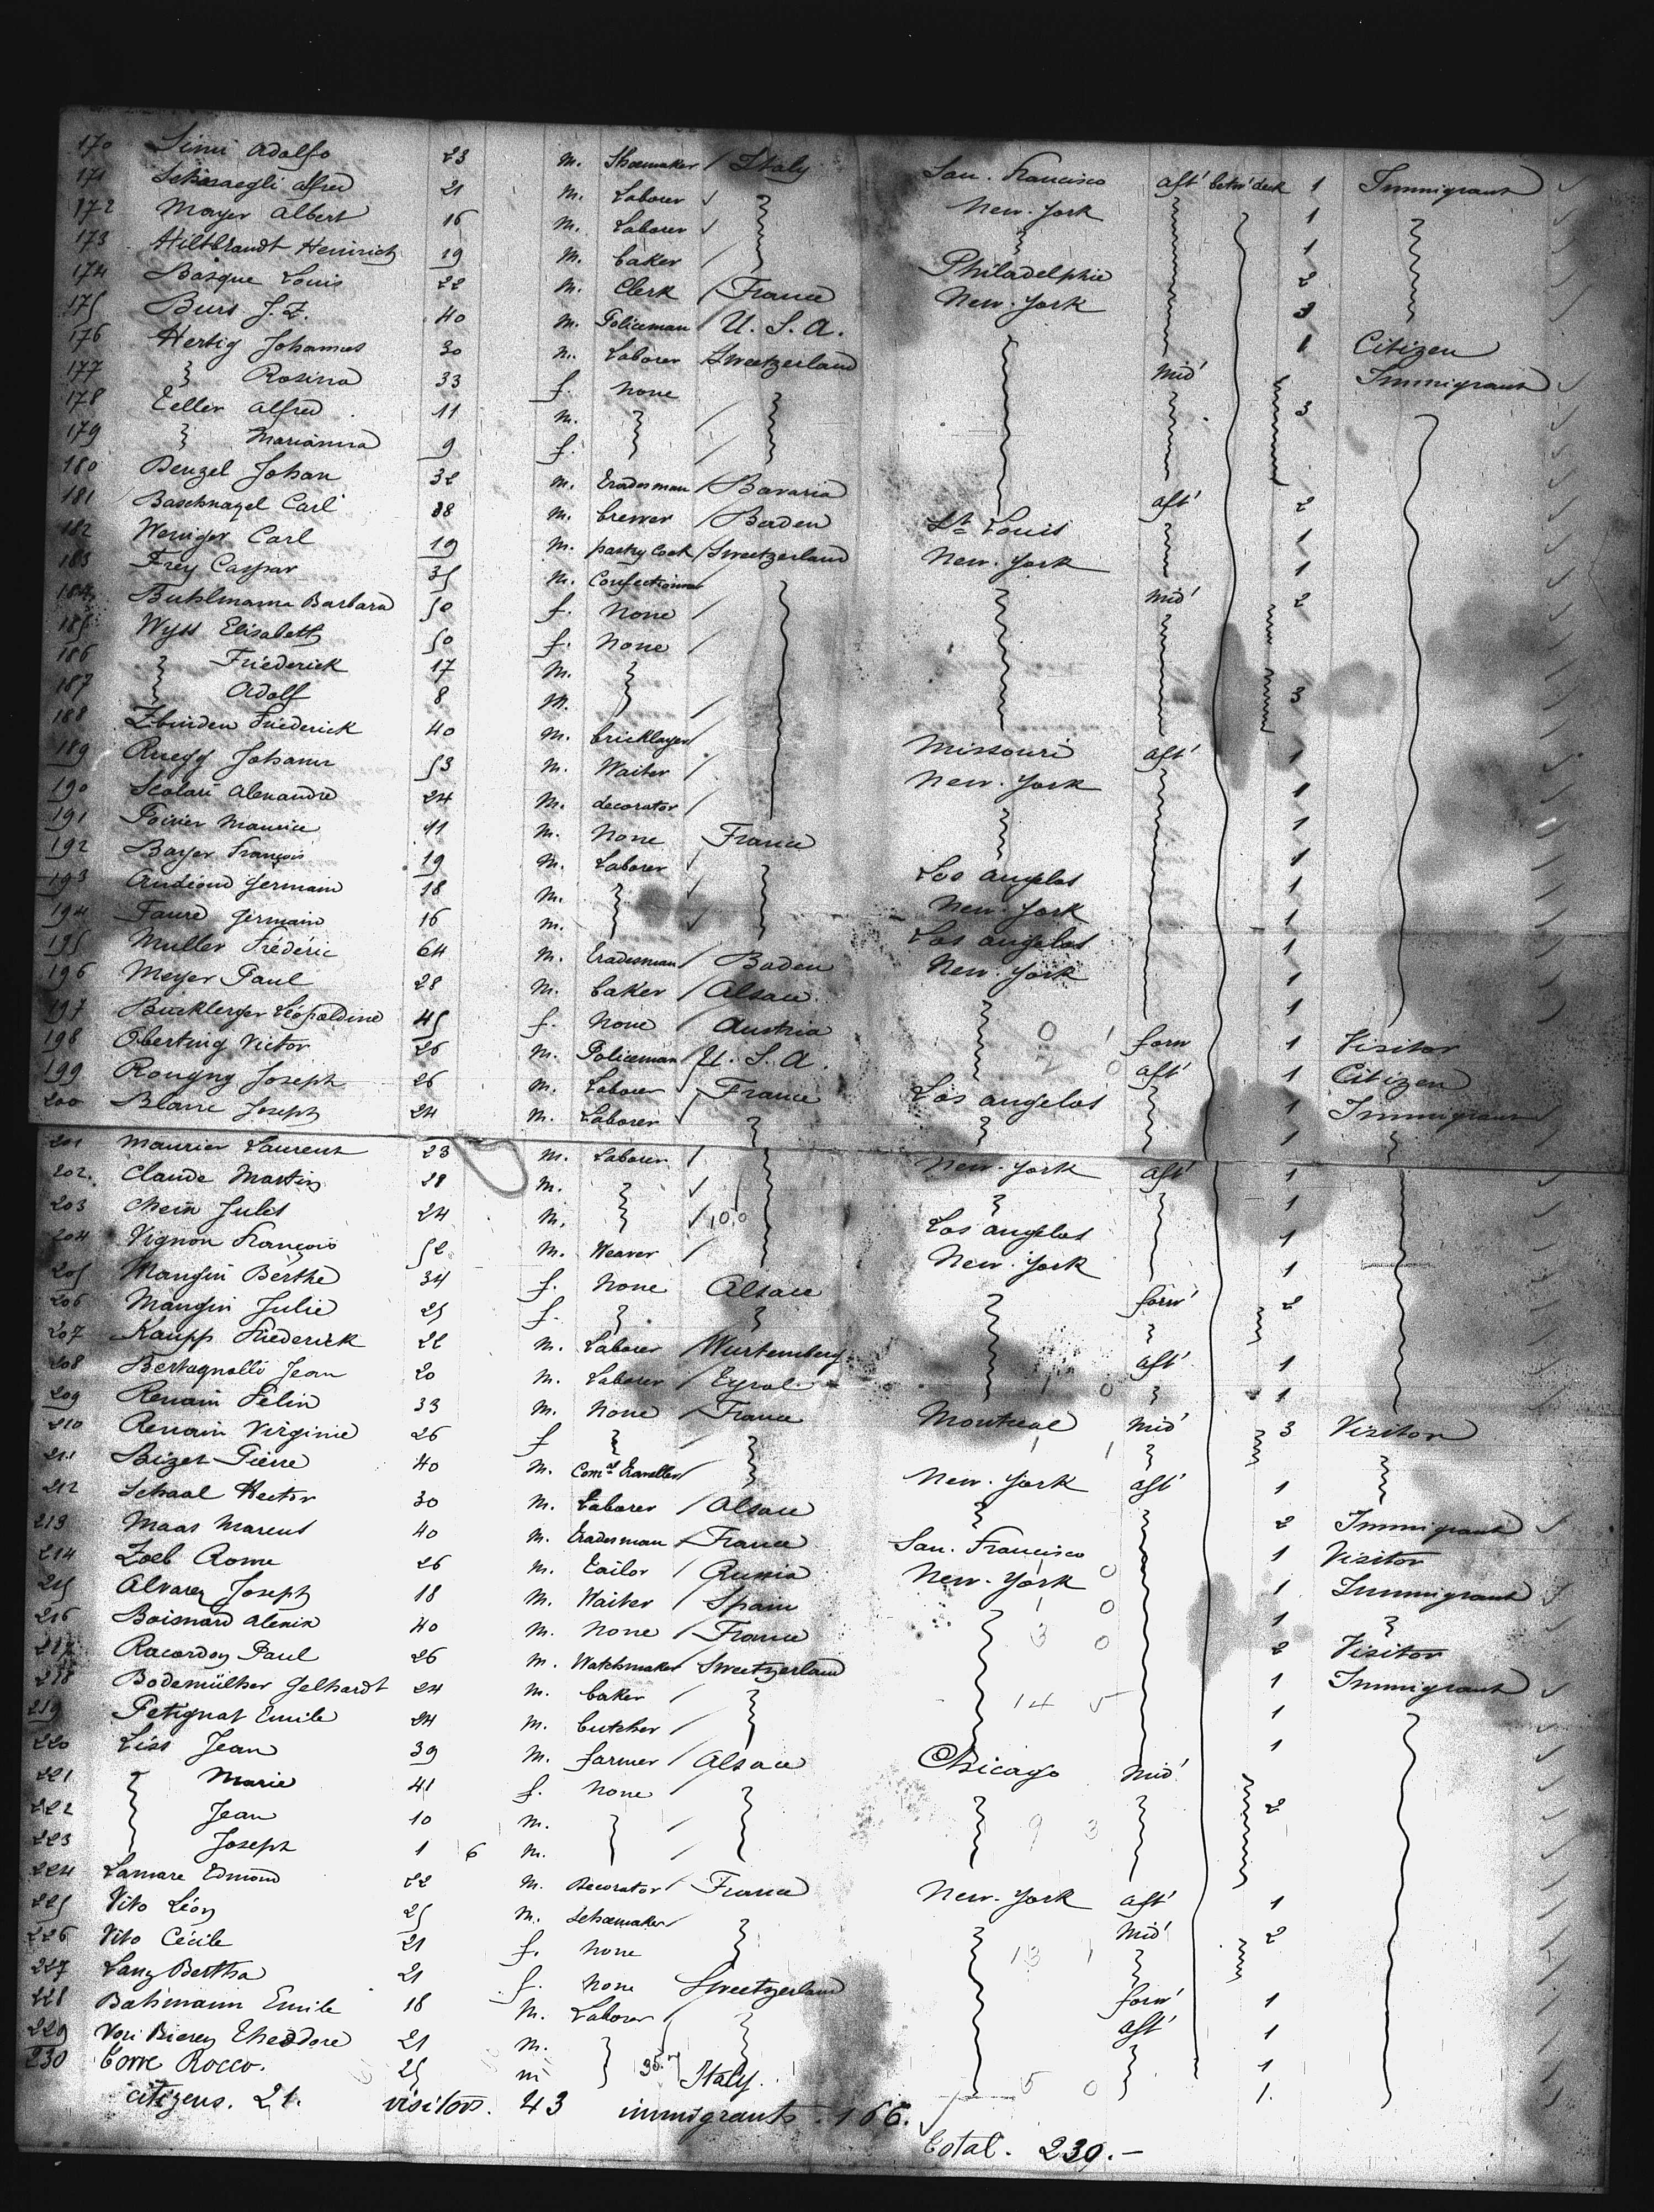 170 Simi Adolfo 23 m. Shoemaker / Italy San. Francisco aft' betw' deck 1 Immigrant
171 alfred 21 m. Laborer New. York 1
172 Mayer albert 16 m. Laborer 1
173 Hiltbrandt Heinrich 19 m. baker / Philadelphie 2
174 Basque Louis 22 m. Clerk / France New. York 3
175 Burs J. Z. 40 m. Policeman / U. S. A. 1 Citizen
176 Hertig Johannes 30 m. Laborer Sweetzerland mid' Immigrant
177 " Rosina 33 f. none 3
178 Teller alfred 11 m. /
179 " Marianna 9 f. /
180 Denzel Johan 32 m. Tradesman / Bavaria aft' 2
181 Baschnagel Carl 38 m. brewer / Baden St. Louis 1
182 Weniger Carl 19 m. pastry cook / Sweetzerland New. York 1
183 Frey Caspar 35 m. Confectioner mid' 2
184 Buhlmann Barbara 50 f. None /
185 Wyss Elisabeth 50 f. None /
186 " Friederick 17 m.
187 " Adolf 8 m. / 3
188 Zbinden Friederick 40 m. bricklayer / Missouri aft' 1
189 Ruegg Johann 53 m. Waiter / New. York 1
190 Scolari Alexandre 24 m. decorator / 1
191 Poirier Maurice 11 m. None France 1
192 Bayer François 19 m. Laborer Los angelos 1
193 Germain 18 m. New. York 1
194 Faure Germain 16 m. Los angelos 1
195 Muller Fréderic 64 m. Tradesman / Baden New. York 1
196 Meyer Paul 28 m. baker / Alsace 1
197 Léopoldine 45 f. None / Austria forw 1 Visitor
198 Oberting Victor 26 m. Policeman / U. S. A. aft' 1 Citizen
199 Joseph 26 m. Laborer / France Los angelos 1 Immigrant
200 Joseph 24 m. Laborer 1
201 Maurier Laurent 23 m. Laborer / New. York aft' 1
202. Claude Martin 28 m. 1
203 Chein Jules 24 m. Los angelos 1
204 Vignon François 52 m. Weaver / New. York 1
205 Mangin Berthe 34 f. None Alsace forw' 2
206 Mangin Julie 25 f.
207 Kaupp Friederick 22 m. Laborer / Wurtemberg aft' 1
208 Bertagnolli Jean 20 m. Laborer / Tyrol 1
209 Renain Felix 33 m. None / France Montreal mid' 3 Visitor
210 Renain Virginie 26 f /
211 Bizet Pierre 40 m. Coml. Traveller / New. York aft' 1
212 Schaal Hector 30 m. Laborer / Alsace 2 Immigrant
213 Maas Marcus 40 m. Tradesman / France San. Francisco 1 Visitor
214 Zoeb 26 m. Tailor / Russia New. York 1 Immigrant
215 Alvarez Joseph 18 m. Waiter / Spain 1
216 Boisnard Alexis 40 m. None / France 2 Visitor
217 Racordon Paul 26 m. Watchmaker Sweetzerland 1 Immigrant
218 Bodemülher Gelhardt 24 m. baker / 1
219 Petignat Emile 24 m. butcher / 1
220 Liss Jean 39 m. farmer / Alsace Chicago mid'
221 " Marie 41 f. None
222 " Jean 10 m. / 2
223 " Joseph 1 6 m. /
224 Lamare Edmond 22 m. Decorator / France New. York aft' 1
225 Vito Léon 25 m. Schoemaker / mid' 2
226 Vito Cécile 21 f. None
227 Lang Bertha 21 f. None Sweetzerland forw' 1
228 Emile 18 m. Laborer aft' 1
229 Theodore 21 m. 1
230 Torre Rocco. 25 m Italy. 1.
citizens. 21. visitors. 43 immigrants. 166.
total. 230.-